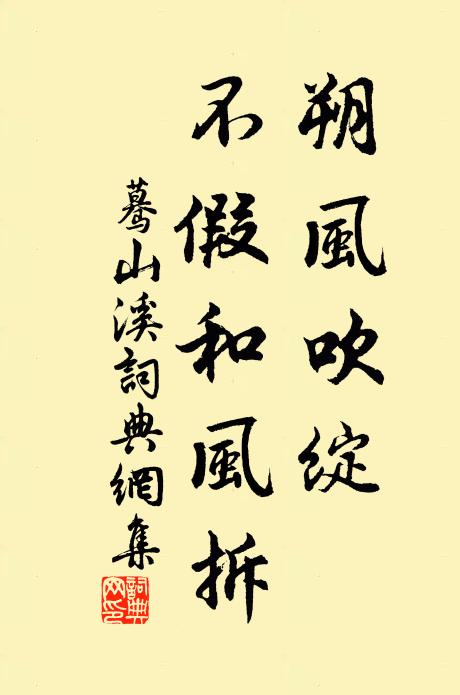 朔風吹綻
不假和風拆
驀山溪詞典網集
詞典網印